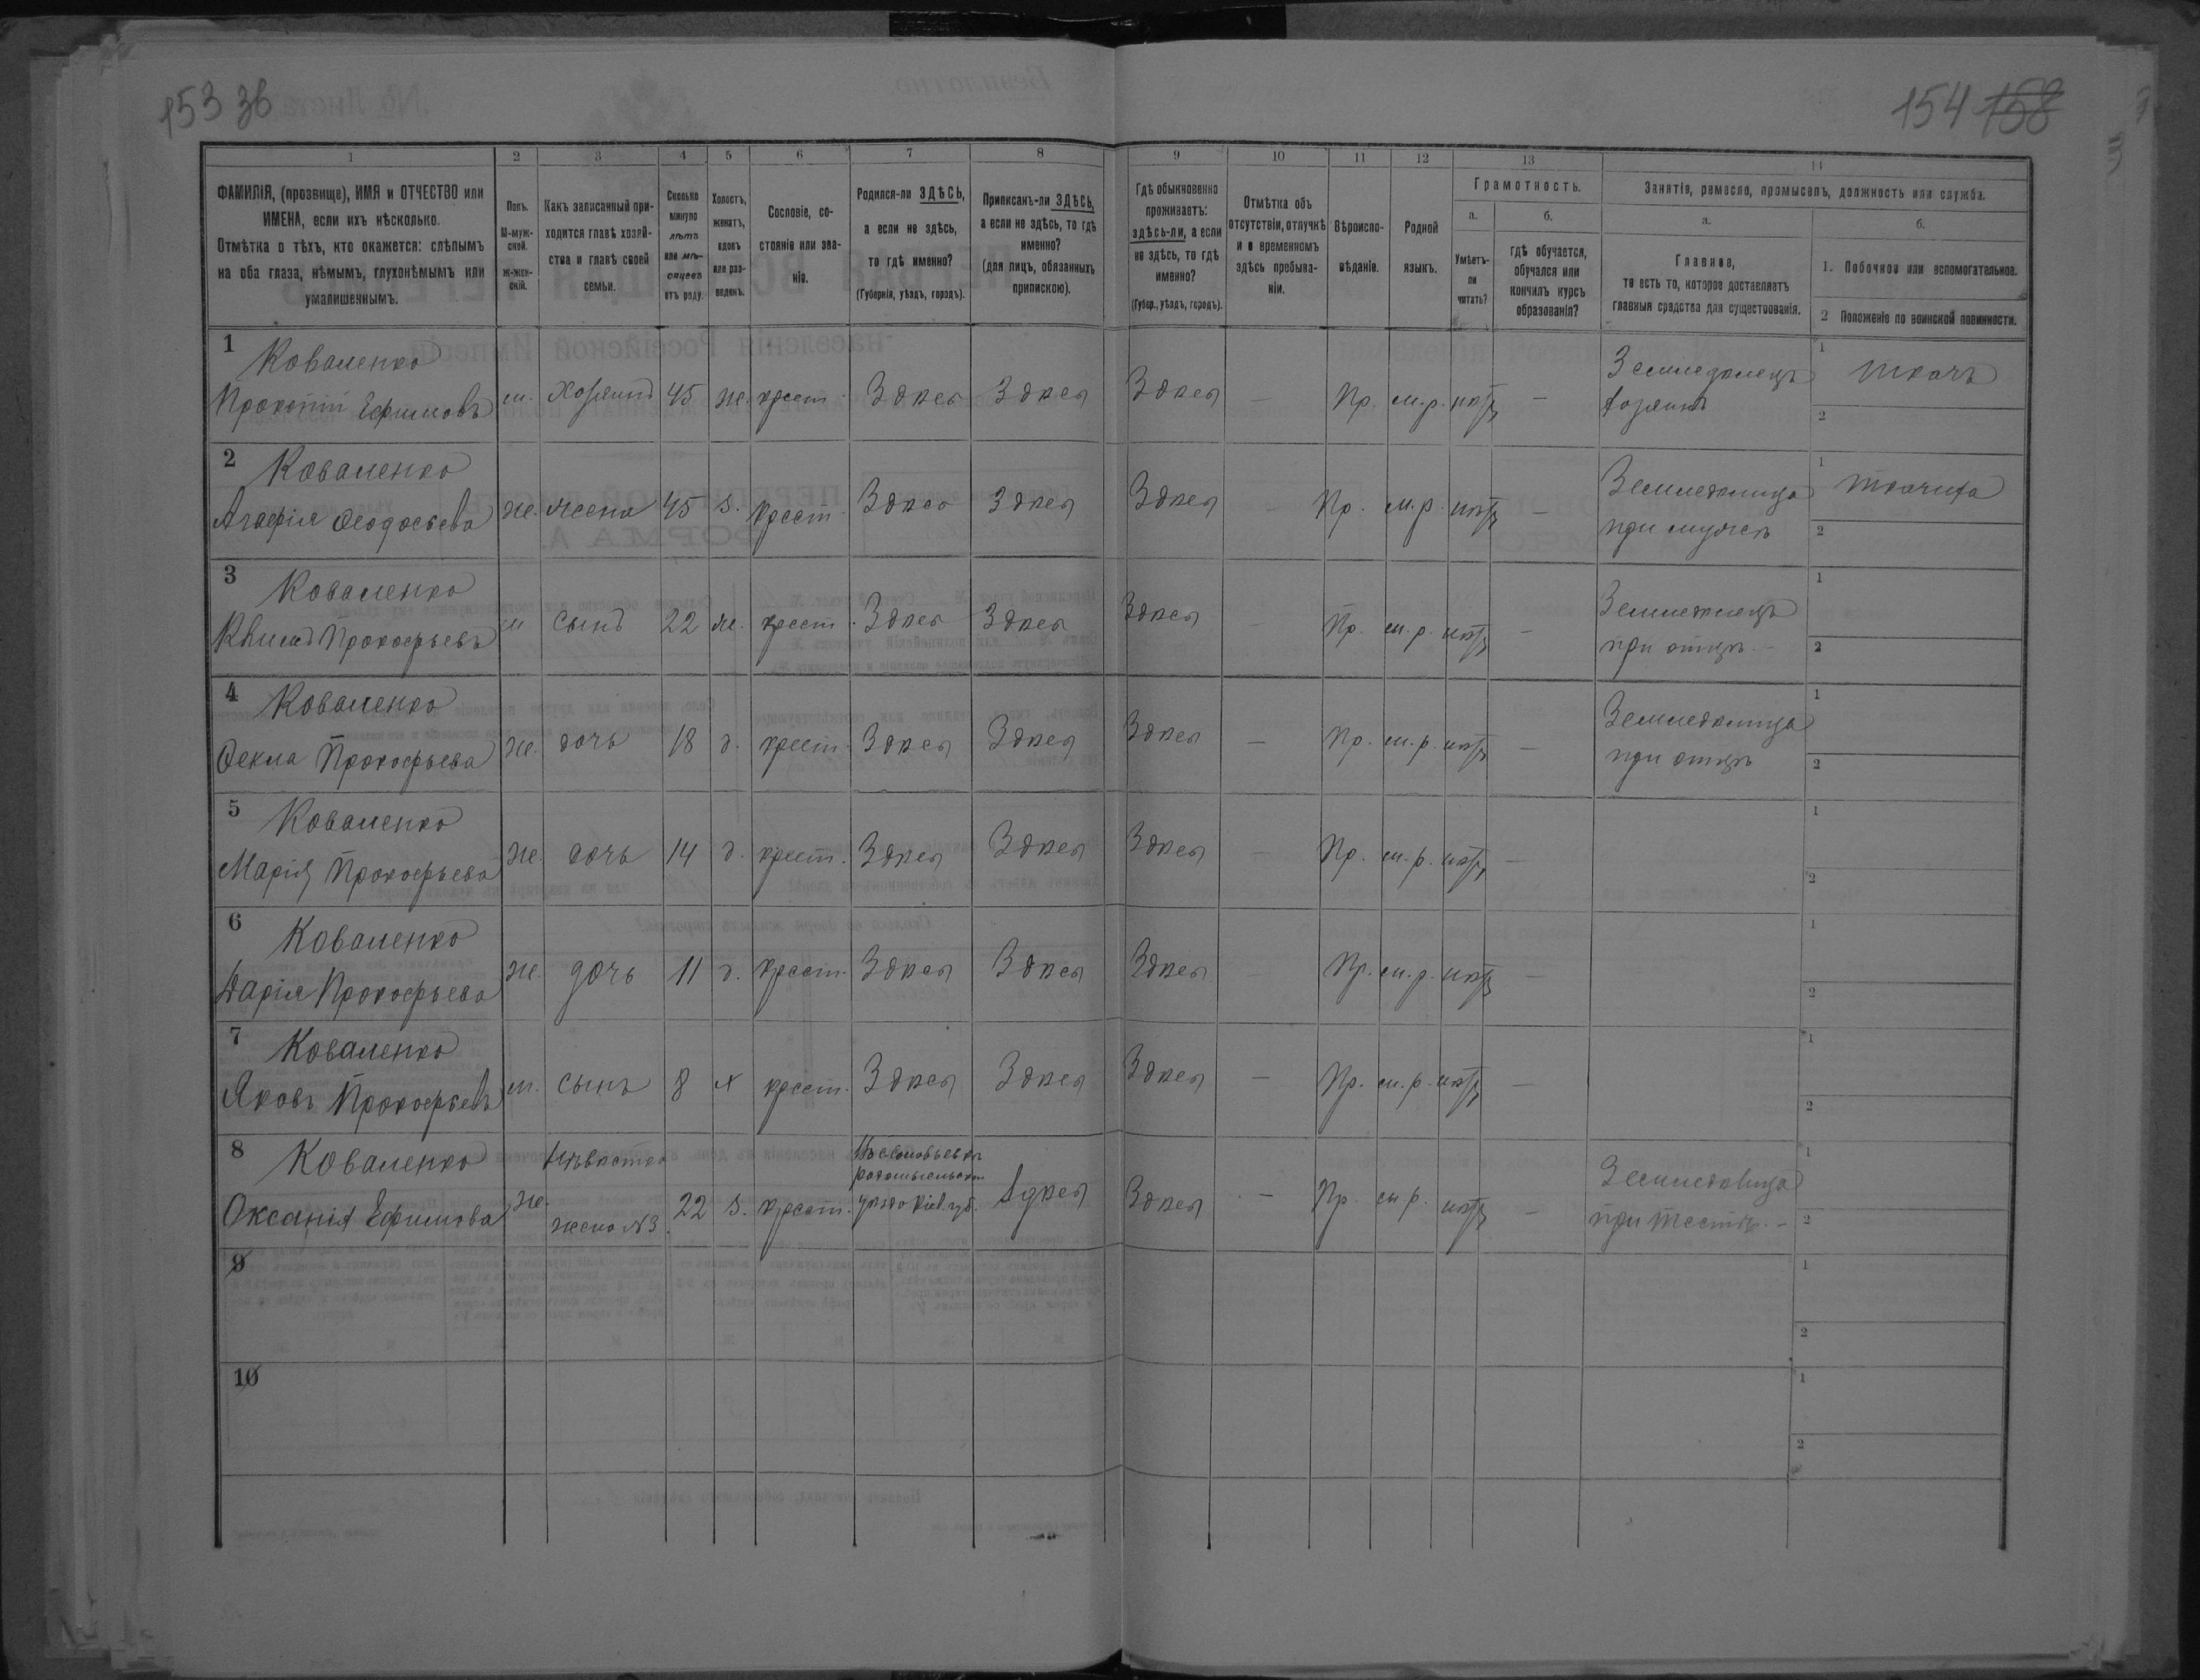 153 зв
154 158
1 2 3 4 5 6 7 8 9 10 11 12 13 14
ФАМИЛІЯ, (прозвище), ИМЯ и ОТЧЕСТВО или
ИМЕНА, если ихъ нѣсколько.
Отмѣтка о тѣхъ, кто окажется: слѣпымъ
на оба глаза, нѣмымъ, глухонѣмымъ или
умалишеннымъ.
Полъ.
М-муж-
ской.
Ж-жен-
скій.
Какъ записанный при-
ходится главѣ хозяй-
ства и главѣ своей
семьи.
Сколько
минуло
лѣтъ
или мѣ-
сяцевъ
отъ роду.
Холостъ,
женатъ,
вдовъ
или раз-
веденъ.
Сословіе, со-
стояніе или зва-
ніе.
Родился-ли ЗДѢСЬ,
а если не здѣсь,
то гдѣ именно?
(Губернія, уѣздъ, городъ).
Приписанъ-ли ЗДѢСЬ,
а если не здѣсь, то гдѣ
именно?
(для лицъ, обязанныхъ
припискою).
Гдѣ обыкновенно
проживаетъ:
здѣсь-ли, а если
не здѣсь, то гдѣ
именно?
(Губер., уѣздъ, городъ).
Отмѣтка объ
отсутствіи, отлучкѣ
и о временномъ
здѣсь пребыва-
ніи.
Вѣроиспо-
вѣданіе.
Родной
языкъ.
Грамотность.
а.
Умѣетъ-
ли
читать?
б.
гдѣ обучается,
обучался или
кончилъ курсъ
образованія?
Занятія, ремесло, промыселъ, должность или служба.
а.
Главное,
то есть то, которое доставляетъ
главныя средства для существованія.
б.
1. Побочное или вспомогательное.
2 Положеніе по воинской повинности.
1 Коваленко
Прокопій Ефимовъ м. хозяинъ 45 ж. крест. Здѣсь Здѣсь Здѣсь — Пр. м.р. нѣтъ —
Земледѣлецъ
хозяинъ
1 ткачъ
2
2 Коваленко
Агафія Ѳеодосьева ж. жена 45 з. крест. Здѣсь Здѣсь Здѣсь — Пр. м.р. нѣтъ —
Земледѣлица
при мужѣ
1 ткачиха
2
3 Коваленко
Прокофьевъ м сынъ 22 ж. крест. Здѣсь Здѣсь Здѣсь — Пр. м.р. нѣтъ —
Земледѣлецъ
при отцѣ
1
2
4 Коваленко
Ѳекла Прокофьева ж. дочь 18 д. крест. Здѣсь Здѣсь Здѣсь — Пр. м.р. нѣтъ —
Земледѣлица
при отцѣ
1
2
5 Коваленко
Марія Прокофьева ж. дочь 14 д. крест. Здѣсь Здѣсь Здѣсь — Пр. м.р. нѣтъ —
1
2
6 Коваленко
Дарія Прокофьева ж. дочь 11 д. крест. Здѣсь Здѣсь Здѣсь — Пр. м.р. нѣтъ —
1
2
7 Коваленко
Яковъ Прокофьевъ м. сынъ 8 х крест. Здѣсь Здѣсь Здѣсь — Пр. м.р. нѣтъ —
1
2
8 Коваленко
Оксанія Ефимова ж.
Невѣстка
жена №3.
22 з. крест.
Радомысльскаго
уѣзда Кіев. губ.
Здѣсь Здѣсь — Пр. м.р. нѣтъ —
Земледѣлица
при тестѣ. —
1
2
9
1
2
10
1
2